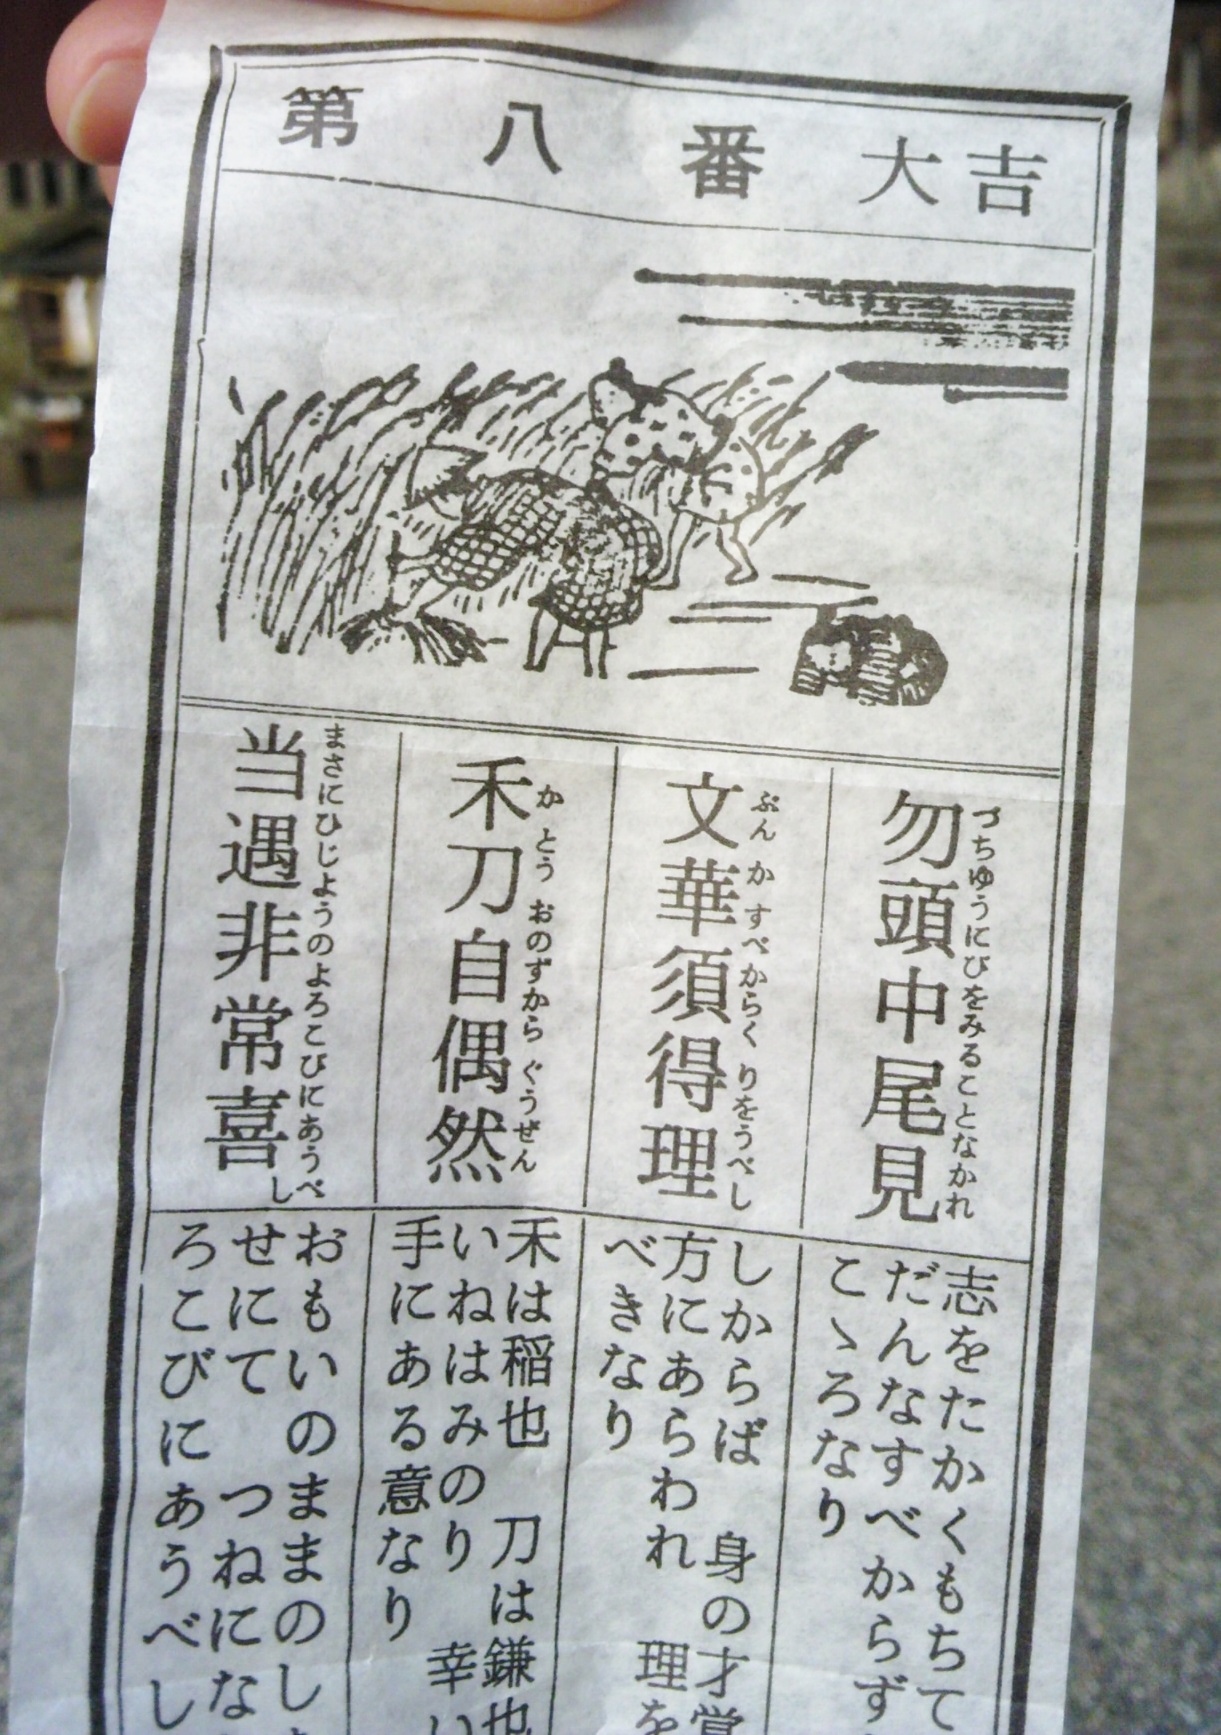 第八番大吉
勿頭中尾見
づちゆうにびをみることなかれ
文華須得理
ぶんかすべからくりをうべし
禾刀自偶然
かとうおのずからぐうぜん
当遇非常喜
まさにひじようのよろこびにあうべし
志をたかくもちて
だんなすべからず
こゝろなり
しからば 身の才覚
方にあらわれ 理を
べきなり
禾は稲也 刀は鎌也
いねはみのり 幸い
手にある意なり
おもいのままのし
せにて つねにな
ろこびにあうべし